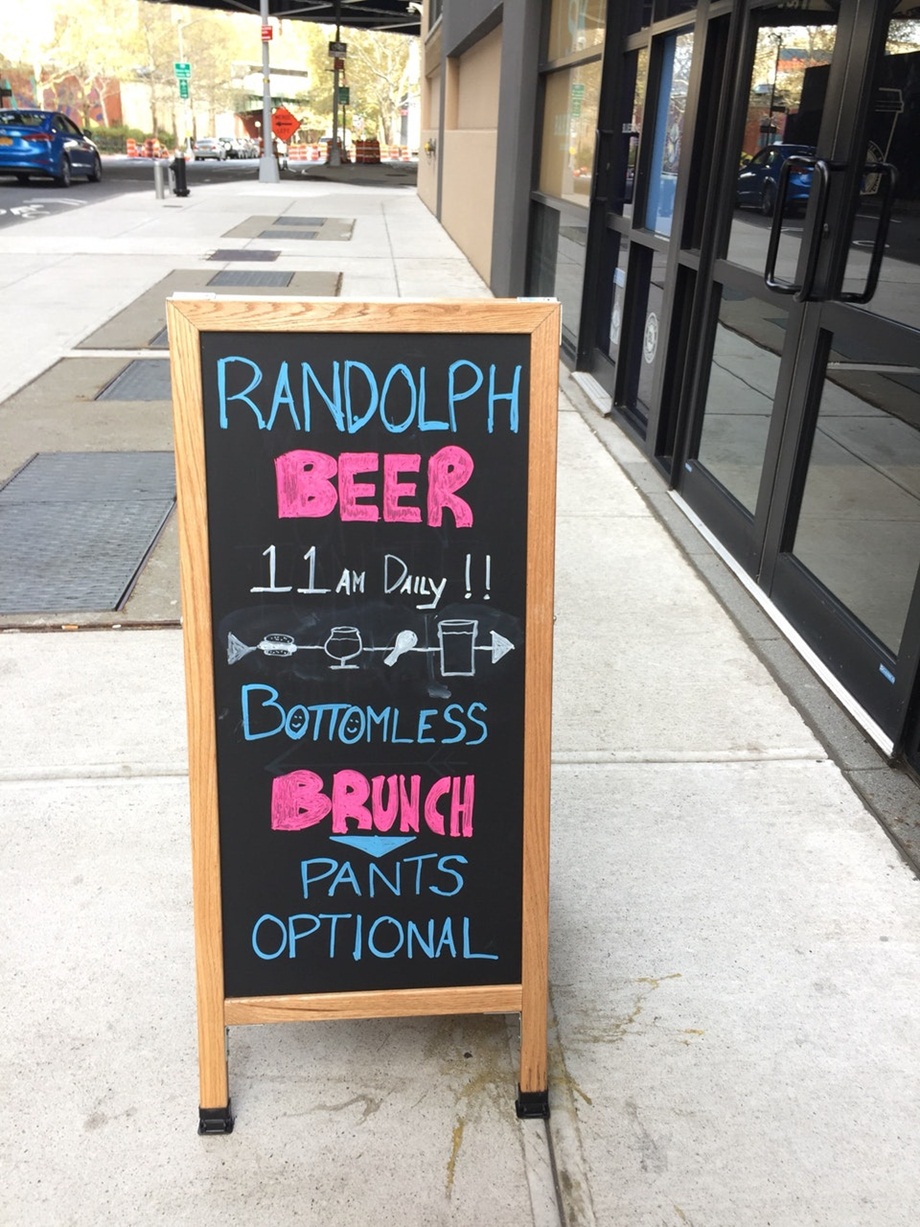 RANDOLPH
BEER
11 AM DAILY!!
BOTTOMLESS
BRUNCH
PANTS
OPTIONAL